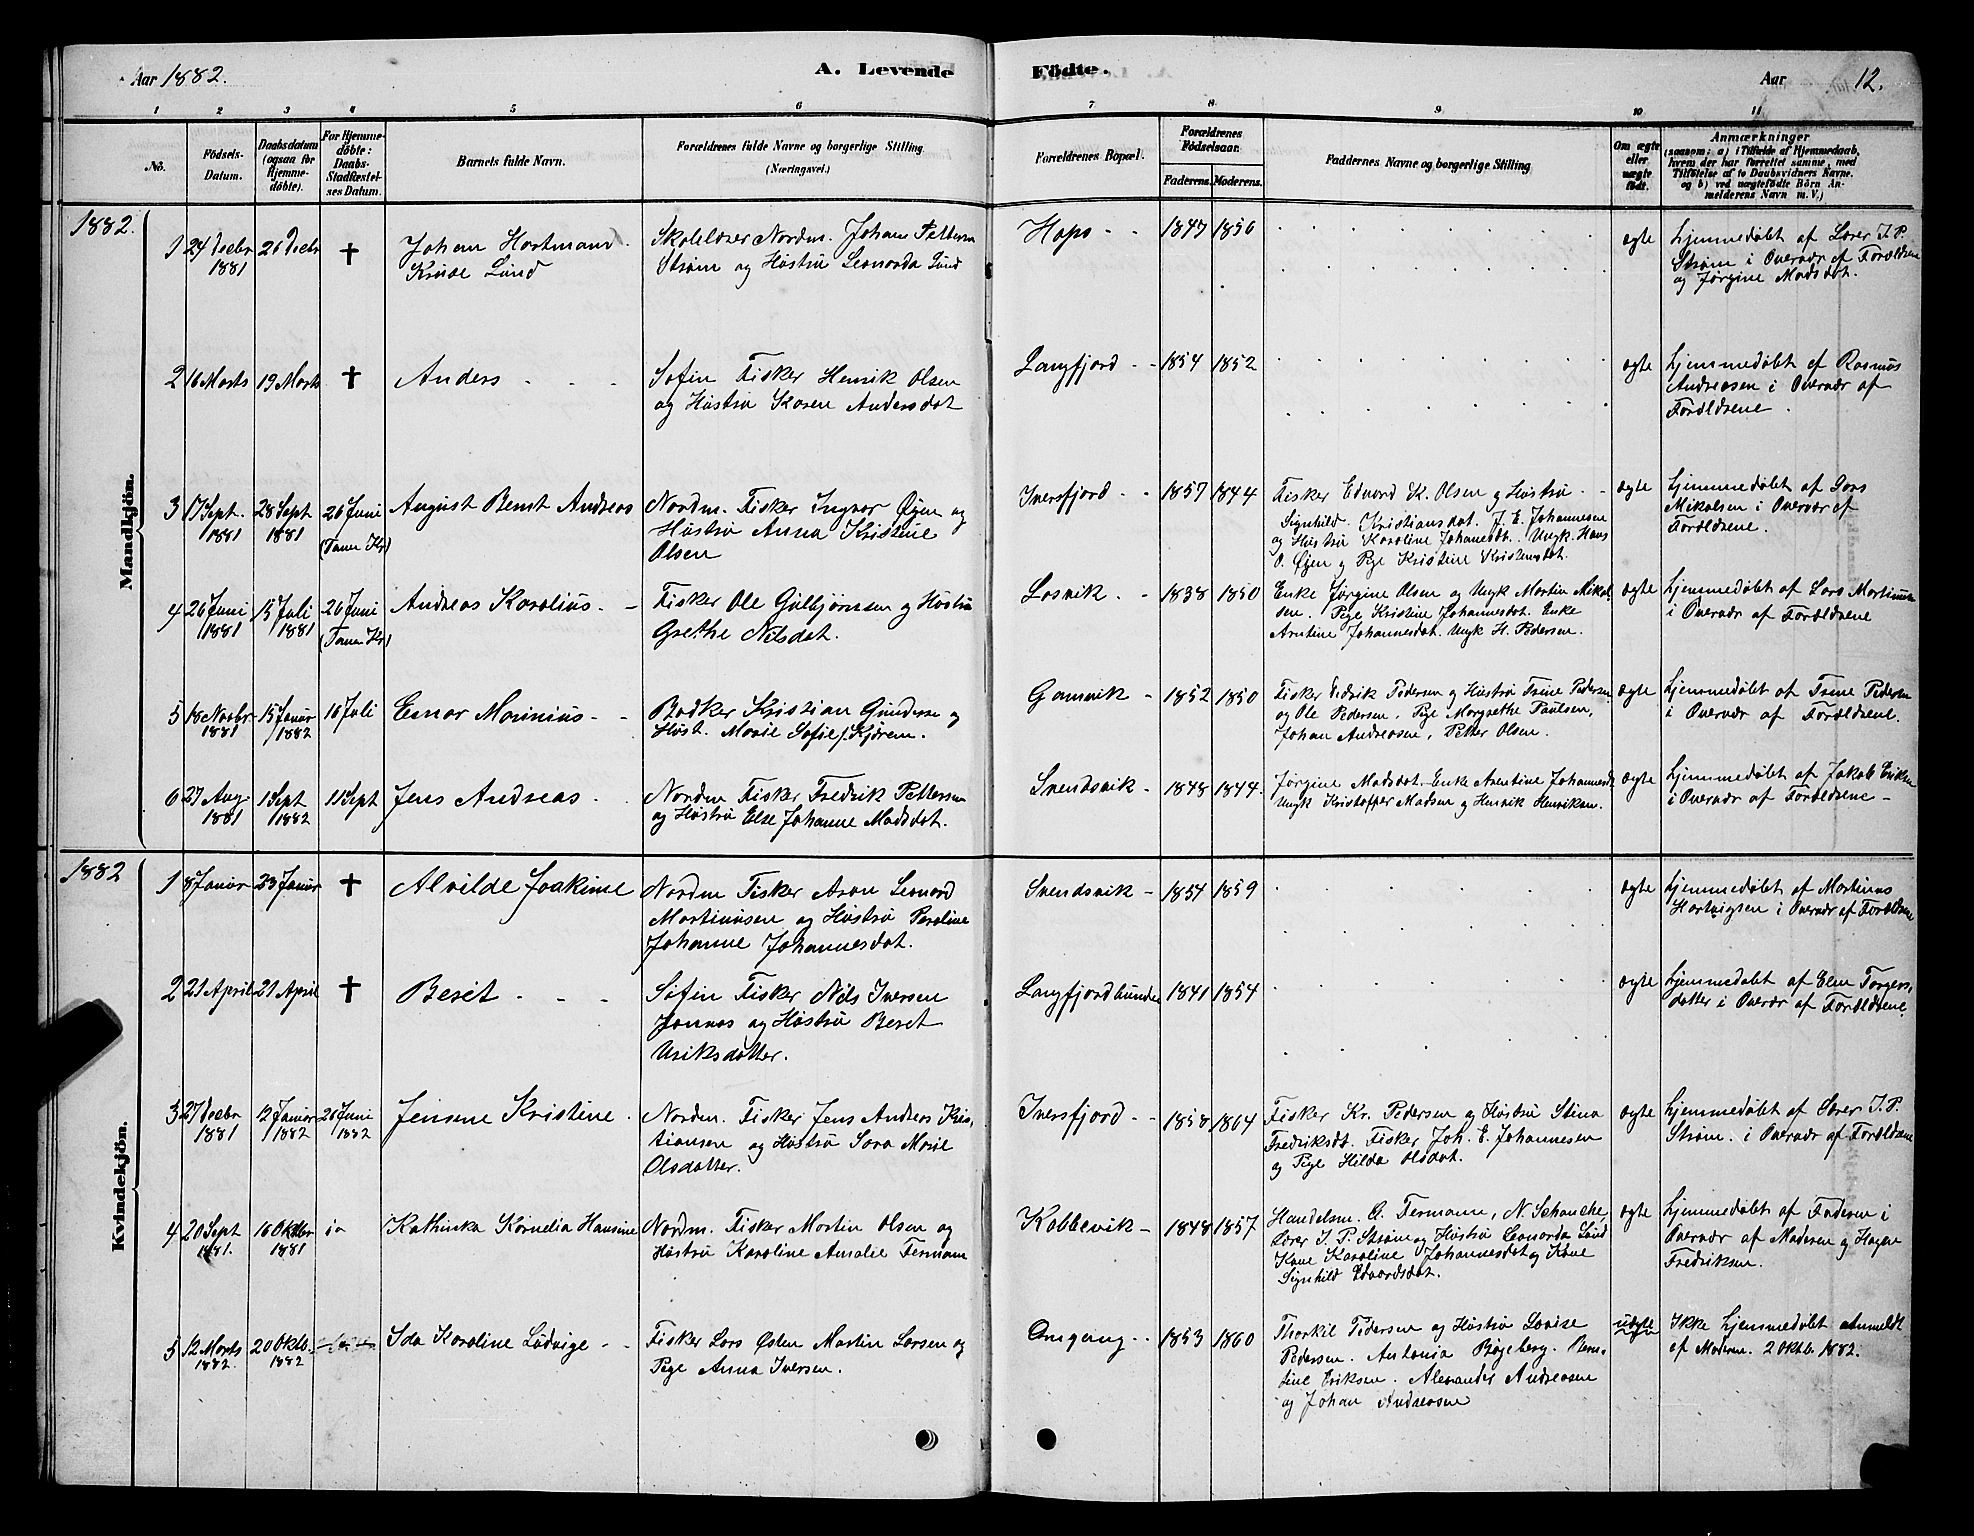 Aar 1882.
A. Levende Födte.
Aar 12.
1 2 3 4 5 6 7 8 9 10 11
No.
Födsels-
Datum.
Daabsdatum
(ogsaa for
Hjemme-
döbte).
For Hjemme-
döbte:
Daabs-
Stadfæstel-
ses Datum.
Barnets fulde Navn.
Forældrenes fulde Navne og borgerlige Stilling
(Næringsvei.)
Forældrenes Bopæl.
Forældrenes
Födselsaar.
Faderens. Moderens.
Faddernes Navne og borgerlige Stilling
Om ægte
eller
uægte
födt.
Anmærkninger
(saasom: a) i Tilfælde af Hjemmedaab,
hvem der har forrettet samme, med
Tilföielse af to Daabsvidners Navne.
og b) ved uægtefödte Börn An-
melderens Navn m.V.)
Mandkjön.
1882.
1 24 Decbr 1881
26 Decbr
†
Johan Hartmann
Kruse Lund
Skolelærer Nordm. Johan Petter
Strøm og Hustru Leonarda Lund
Hops
1847 1856
ægte
hjemmedøbt af Lærer J. P.
Strøm i Overvær af Forældrene
og Jørgine Madsdat.
2 16 Marts
19 Marts
†
Anders
Søfin Fisker Henrik Olsen
og Hustru Karen Andersdat
Langfjord
1854 1852
ægte
hjemmedøbt af Rasmus
Andreasen i Overvær af
Forældrene.
3 17 Sept. 1881
28 Sept 1881
26 Juni
(Tanen Kr)
August Bernt Andreas
Nordm. Fisker Ingvar Øien og
Hustru Anna Kristine
Olsen
Iversfjord
1857 1844
Fisker Edvard K. Olsen og Hustru
Signhild Kristiansdat. J. E. Johannesen
og Hustru Karoline Johannesdt. Ungk. Hans
O. Øien og Pige Kristine Kristensdat.
ægte
hjemmedøbt af Lars
Mikalsen i Overvær af
Forældrene.
4 26 Juni 1881
15 Juli 1881
26 Juni
(Tanen Kr)
Andreas Karolius
Fisker Ole Gulbjørnsen og Hustru
Grethe Nilsdat.
Losvik
1838 1850
Enke Jørgine Olsen og Ungk Martin Mikal
sen. Pige Kristine Johannesdat. Enke
Arntine Johannesdat. Ungk H. Pedersen.
ægte
hjemmedøbt af Lars Martinsen
i Overvær af Forældrene
5 18 Novbr 1881
15 Januar 1882
16 Juli
Einar Monnius
Bødker Kristian Gundersen og
Hust. Marie Sofie f. Kjæren.
Gamvik
1852 1850
Fisker Didrik Pedersen og Hustru Trine Pedersen
og Ole Pedersen, Pige Margrethe Paulsen,
Johan Andreasen, Petter Olsen.
ægte
hjemmedøbt af Trine Pedersen
i Overvær af Forældrene.
6 27 Aug 1881
1 Sept 1882
11 Sept
Jens Andreas
Nordm Fisker Fredrik Pettersen
og Hustru Else Johanne Madsdat.
Svendsvik
1848 1844.
Jørgine Madsdat. Enke Arentine Johannesdt
Ungk Kristoffer Madsen og Henrik Henriksen.
ægte
hjemmedøbt af Jakob Eriksen
i Overvær af Forældrene
Kvindekjön.
1882
1 8 Januar
23 Januar
†
Alvilde Joakime
Nordm Fisker Aron Leonard
Martinusen og Hustru Paroline
Johanne Johannesdat.
Svendsvik
1854 1859
ægte
hjemmedøbt af Martinus
Hartvigsen i Overvær af Forældrene
2 21 April
21 April
†
Beret
Søfin Fisker Nils Iversen
Jonnas og Hustru Beret
Uriksdatter.
Langfjordbunden
1841 1854
ægte
hjemmedøbt af Elen Torgers,
datter i Overvær af Forældrene
3 27 Decbr 1881
12 Januar 1882
26 Juni 1882
Jensine Kristine
Nordm. Fisker Jens Andreas Kris,
tiansen og Hustru Sara Marie
Olsdatter.
Iversfjord
1858 1864
Fisker Kr. Pedersen og Hustru Stina
Fredriksdt. Fisker Joh. E. Johannesen
og Pige Hilda Olsdat.
ægte
hjemmedøbt af Lærer J. P.
Strøm. i Overvær af Forældrene
4 20 Sept 1881.
16 Oktbr 1881
ja
Kathinka Kornelia Hansine
Nordm. Fisker Martin Olsen og
Hustru Karoline Amalie Fermann
Kobbevik
1848 1857
Handelsm. O. Fermann, N. Schanche
Lærer J. P. Strøm og Hustru Leonarda Lund
Kone Karoline Johannesdat og Kone
Signhild Edvardsdat.
ægte
hjemmedøbt af Faderen i
Overvær af Moderen og Hagen
Fredriksen.
5 12 Marts 1882.
20 Oktb. 1882
Ida Karoline Ludvige
Fisker Lars Østen Martin Larsen og
Pige Anna Iversen.
Omgang
1853 1860
Thorkil Pedersen og Hustru Lovise
Pedersen. Antonia Bøgeberg. Bern-
tine Eriksen. Alexander Andreasen
og Johan Andreasen
uægte
Ikke hjemmedøbt anmeldt
af Moderen. 2 Oktb. 1882.